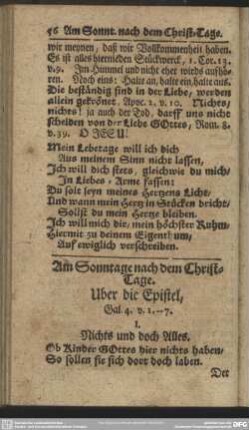 56 Am Sonnt. nach dem Christ-Tage.
wir meynen, daß wir Vollkommenheit haben.
Es ist alles hiernieden Stückwerck, 1. Cor. 13.
v. 9. Im Himmel und nicht eher wirds aufhö-
ren. Noch eins: Halte an, halte ein, halte aus.
Die beständig sind in der Liebe, werden
allein gekrönet. Apoc. 2. v. 10. Nichts,
nichts! ja auch der Tod, darff uns nicht
scheiden von der Liebe GOttes, Rom. 8.
v. 39. O JESU!
Mein Lebetage will ich dich
Aus meinem Sinn nicht lassen,
Ich will dich stets, gleichwie du mich,
In Liebes-Arme fassen:
Du solt seyn meines Hertzens Licht,
Und wann mein Hertz in Stücken bricht,
Solst du mein Hertze bleiben.
Ich will mich dir, mein höchster Ruhm,
Hiermit zu deinem Eigenthum,
Auf ewiglich verschreiben.
Am Sonntage nach dem Christ-
Tage.
Uber die Epistel,
Gal. 4. v. 1.--7.
1.
Nichts und doch Alles.
Ob Kinder GOttes hier nichts haben,
So sollen sie sich dort doch laben.
Der